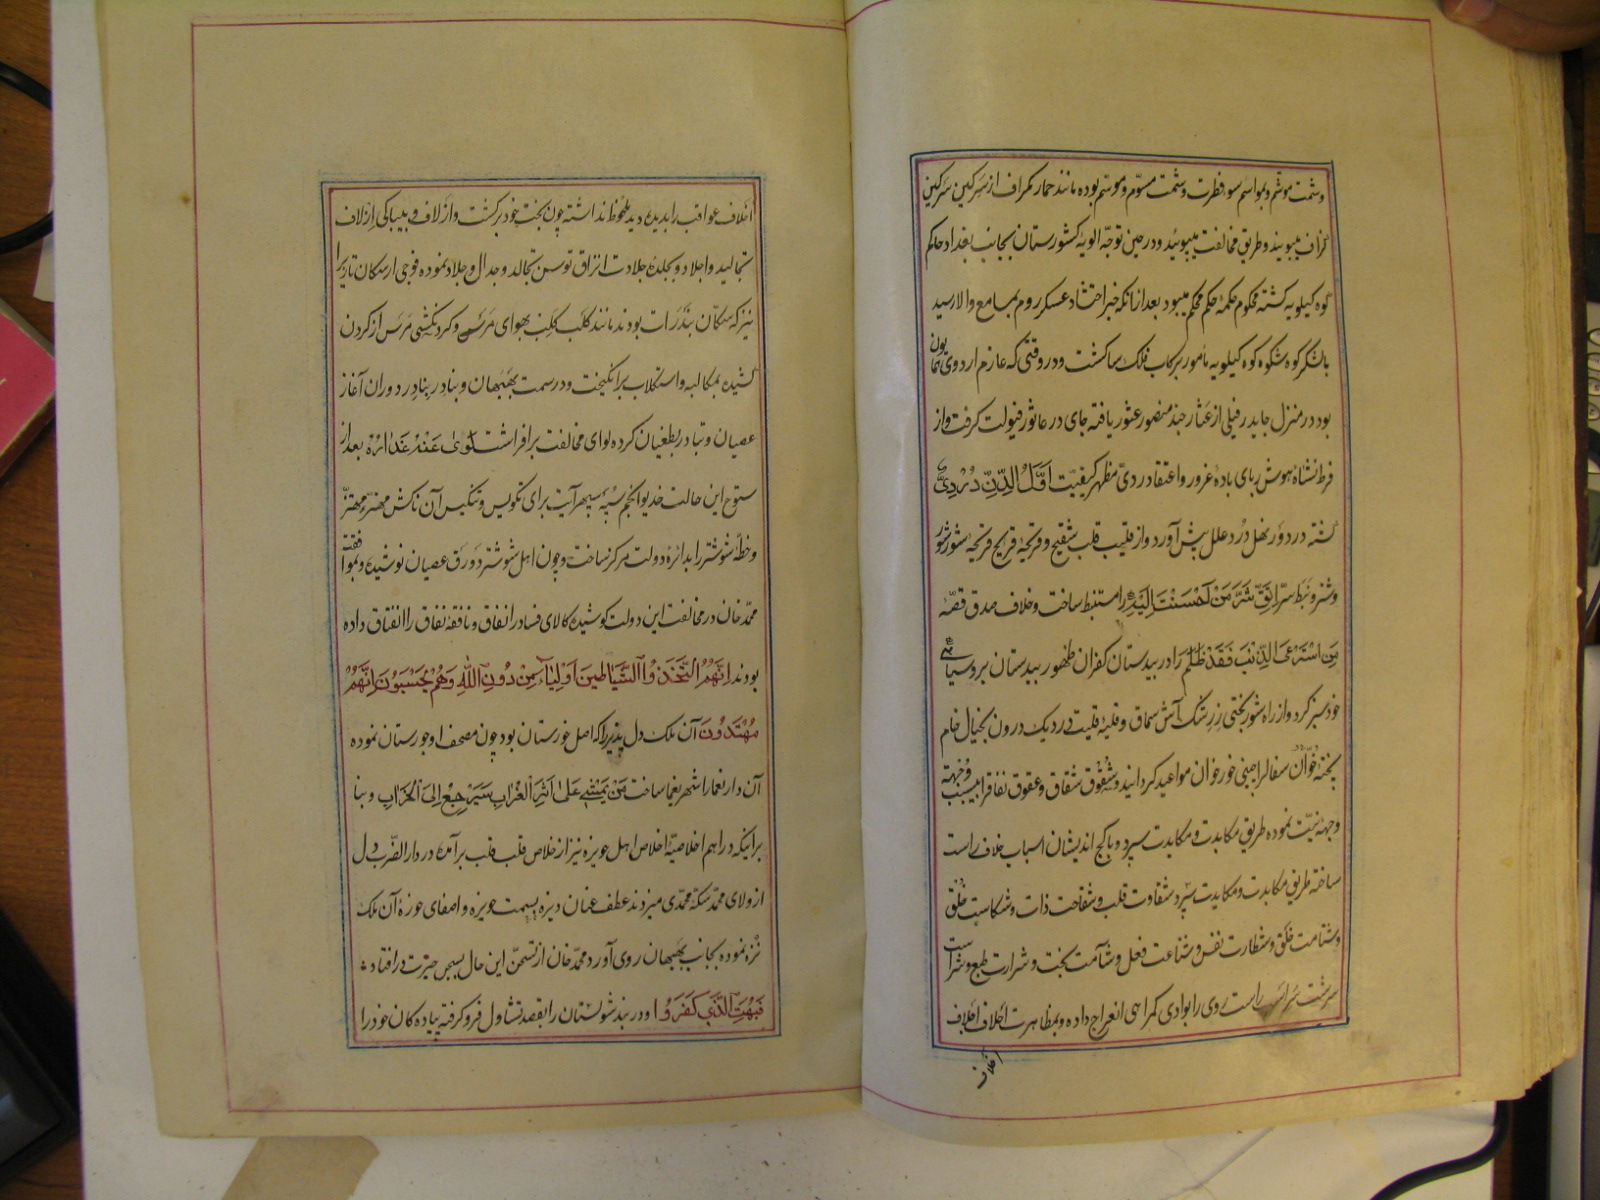 وشمت موشم وبمواسم سوء فطرت وشمت مسوّم وموسم بوده مانند حمار کمراف از سرکین سرکین
کزاف میبویید وطریق مخالفت میپویید ودر حین توجّه الویهٔ کشورستان بجانب بغداد حاکم
کوه کیلویه کشته محکوم حکمهٔ حکم محکم میبود بعد از انکه خبر احتشاد عسکر روم بمسامع والا رسید
با لشکر کوه شکوه کوه کیلویه مأمور برکاب فلک سا کشت ودر وقتی که عازم اردوی همایون
بود در منزل جایدر فیلی از عثار جند منصور عثور یافته جای در عاثور فیولت کرفت واز
فرط انتشاء هوش ربای بادهٔ غرور واعتقاد ردیّ مظهر کیفیّت اَوَّلُ الدَّنِّ دُرْدِیٌّ
کشته در دور نهل دُرد علل پیش آورد واز قلیب قلب شقیح وقریحهٔ قریح قریحه شور شور
وشر ونبط سرّ اتَّقِ شَرَّ مَنْ اَحْسَنْتَ اِلَیْهِ را مستنبط ساخت وخلاف صدق قصّهٔ
مَنِ اسْتَرْعَی الذِّئْبَ فَقَدْ ظَلَمَ را در بیدستان کفران ظهور بیدستان برد وسیاهی
خود سبز کرد واز راه شور بختی زرشک آش سماق وقلیهٔ قلیت در دیک درون بخیال خام
پخته خوّان سفالرا چینی خور خوان مواعید کردانید وشقوق شقاق وعقوق نفاقرا بسبب وجهه
وجههٔ نیّت نموده طریق مکابدت ومکایدت سپرد وبا کج اندیشان اسباب خلاف راست
ساخته طریق مکابدت ومکایدت سپرد شقاوت قلب وشقاحت ذات وشکاست خلق
وشتامت خلق وشطارت نفس وشناعت فعل وشآمت بخت وشرارت طبع وشراست
سرشت سر راست روی را بوادی کمراهی انعراج داده وبمظاهرت اخلاف اخلاف
اخلاف
اخلاف عواقب را بدیدهٔ دید ملحوظ نداشته چون بخت خود برکشت واز لاف وبیباکی از لاف
تجالید واجلاد وبجلدهٔ جلادت انزاق توسن تجالد وجدال وجلاد نموده فوجی از سکان تازیرا
نیز که سکّان بندرات بودند مانند کلب کلِب بهوای مرئسی وکردنکشی مرس از کردن
کشیده بمکالبه واستکلاب برانکیخت ودر سمت بهبهان وبنادر بنادر دوران آغاز
عصیان وتبادر بطغیان کرده لوای مخالفت برافراشت لَوی عَنْهُ عَذارَهُ بعد از
سنوح این حالت خدیو انجم سپه سپهر آیت برای تکویس وتنکیس آن ناکس مهترّ مهترّ
وخطّهٔ شوشتر را بدائرهٔ دولت مرکز ساخت وچون اهل شوشتر دَورَق عصیان نوشیده وبموافقت
محمّد خان در مخالفت این دولت کوشیده کالای فساد را نفاق ونافقهٔ نفاق را انفتاق داده
بودند اِنَّهُمُ اتَّخَذُوا الشَّیَاطِینَ اَوْلِیَآءَ مِنْ دُونِ اللّٰهِ وَهُمْ یَحْسَبُونَ اَنَّهُمْ
مُهْتَدُونَ آن ملک دل پذیر را که اصل خورستان بود چون مصحف او جورستان نموده
آن دار نعما را شهر یغما ساخت مَنْ یَمْشِی عَلیٰ اَثَرِ الْغُرابِ سَیَرْجِعُ اِلَی الْخَرابِ وبنا
برانیکه دراهم اخلاصیّهٔ اخلاص اهل حویزه نیز از خلاص قلب قلب برآمده در دار الضّرب دل
از ولای محمّد سکهٔ محمّدی میزدند عطف عنان دیزه بسمت حویزه واصفای حوزهٔ آن ملک
نزه نموده بجانب بهبهان روی آورد محمّد خان از تسحّن این حال بسجن حیرت درافتاد
فَبُهِتَ الَّذِی کَفَرَ واو در بند شولستان را بقصد تشاول فرو کرفته پیاده کان خود را